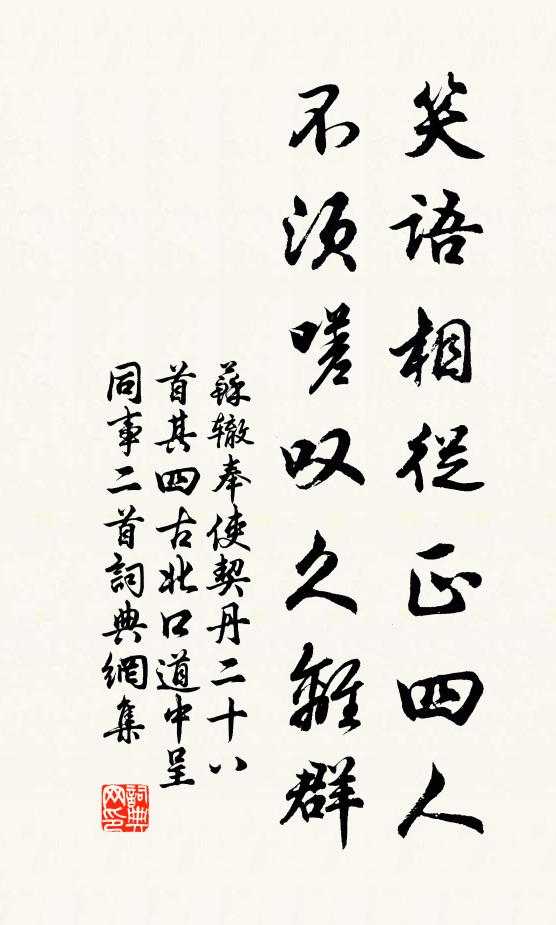 笑語相從正四人
不須嗟叹久離群
蘇辙奉使契丹二十八
首其四古北口道中呈
同事二首詞典網集
詞典网印